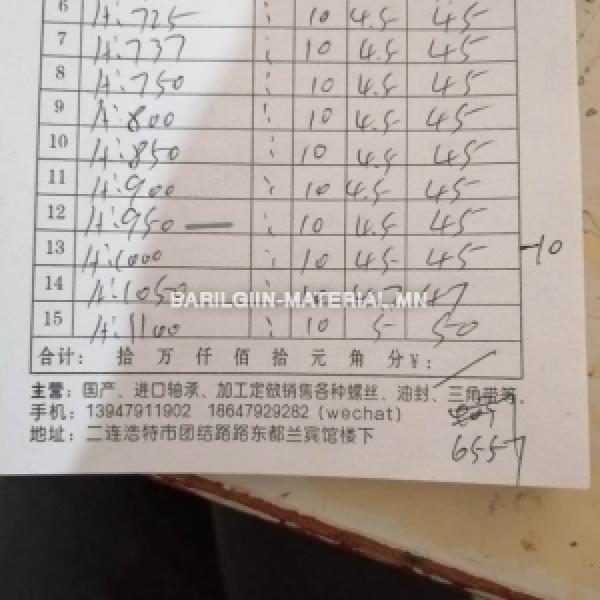 6 A: 725 : 10 4.5 45
7 A: 737 : 10 4.5 45
8 A: 750 : 10 4.5 45
9 A: 800 : 10 4.5 45
10 A: 850 : 10 4.5 45
11 A: 900 : 10 4.5 45
12 A: 950 — : 10 4.5 45
13 A: 1000 : 10 4.5 45 -10
14 A: 1050 : 10 4.7 47
BARILGIIN-MATERIAL.MN
15 A: 1100 : 10 5 50
合计: 拾 万 仟 佰 拾 元 角 分¥:
主营: 国产、进口轴承、加工定做销售各种螺丝、油封、三角带等。
手机: 13947911902 18647929282 (wechat)
地址: 二连浩特市团结路路东都兰宾馆楼下
655